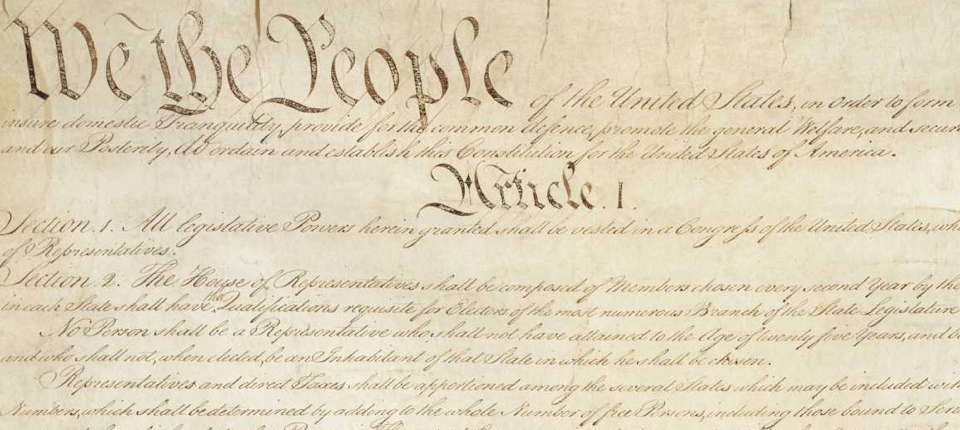 We the People of the United States, in Order to form
insure domestic Tranquility, provide for the common defence, promote the general Welfare, and secure
and our Posterity, do ordain and establish this Constitution for the United States of America.
Article. I.
Section. 1. All legislative Powers herein granted shall be vested in a Congress of the United States, wh
of Representatives.
Section. 2. The House of Representatives shall be composed of Members chosen every second Year by the
in each State shall have the Qualifications requisite for Electors of the most numerous Branch of the State Legislature
No Person shall be a Representative who shall not have attained to the Age of twenty five Years, and be
and who shall not, when elected, be an Inhabitant of that State in which he shall be chosen.
Representatives and direct Taxes shall be apportioned among the several States which may be included with
Numbers, which shall be determined by adding to the whole Number of free Persons, including those bound to Serv